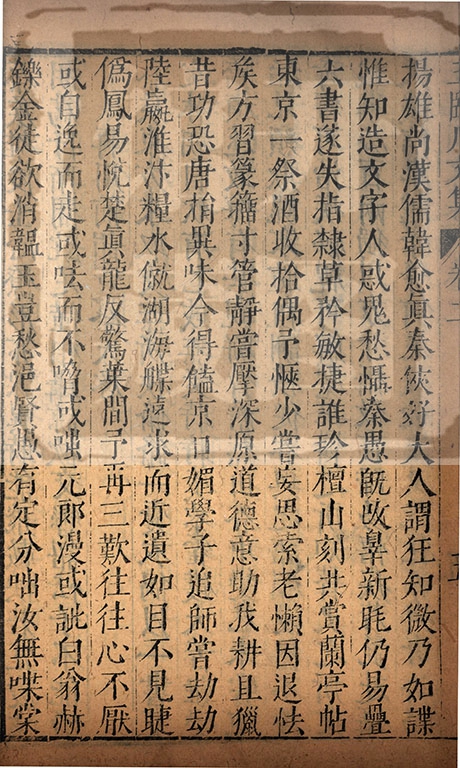 王臨川文集 卷二 五
揚雄尚漢儒韓愈眞秦俠好大人謂狂知微乃如諜
惟知造文字人惑鬼愁懾秦愚旣改辠新眊仍易疊
六書遂失指隸草矜敏捷誰珍檀山刻共賞蘭亭帖
東京一祭酒收拾偶予愜少嘗妄思索老懶因退怯
矣方習篆籀寸管靜嘗擪深原道德意助我耕且獵
昔功恐唐捐異味今得饁京口媚學子追師嘗劫劫
陸贏淮汴糧水僦湖海艓遠求而近遺如目不見睫
偽鳳易悅楚眞龍反驚葉間予再三歎往往心不厭
或自逸而走或呿而不嗋或嗤元郎漫或訿白翁赫
鑠金徒欲消韞玉豈愁浥賢愚有定分咄汝無喋棠